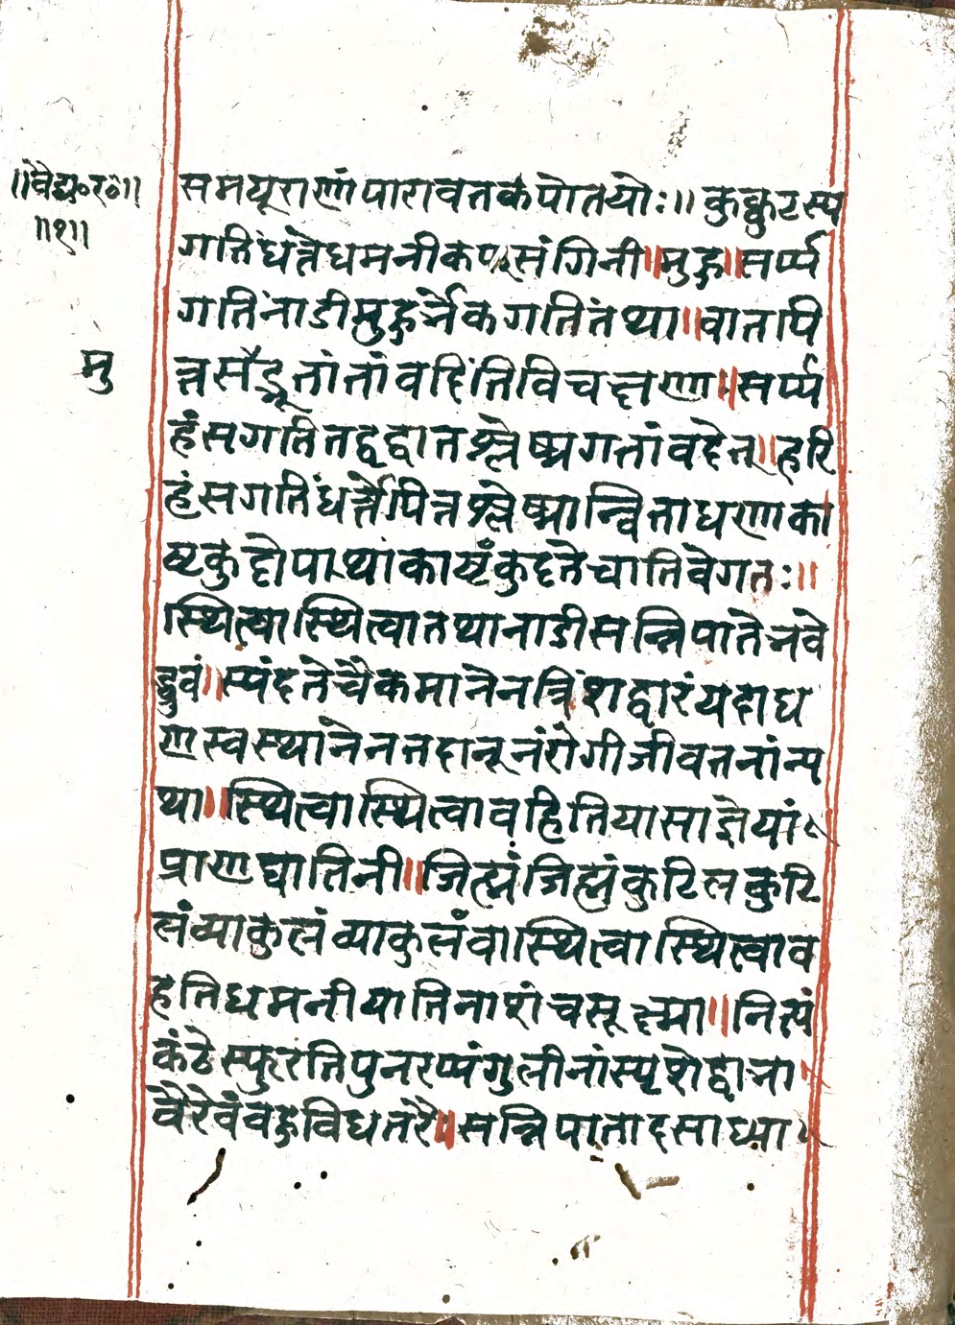 ॥वैद्य०र०॥
॥१॥
समयूराणां पारावतकपोतयोः॥ कुक्कुटस्य
गतिं धत्ते धमनी कफसंगिनी॥ मुहु॥ सर्प्प
गतिं नाडी मुहुर्भेकगतिं तथा॥ वातपि
मु
त्तसमुद्भूतां तां वदंति विचक्षणा॥ सर्प्प
हंसगतिं तद्वद्वातश्लेष्मगतां वदेत्॥ हरि
हंसगतिं धर्त्ते पित्तश्लेष्मान्विता धरा का
ष्टकुट्टो यथा काष्टं कुट्टते चातिवेगतः॥
स्थित्वा स्थित्वा तथा नाडी सन्निपाते भवे
द्ध्रुवं॥ स्पंदते चैकमानेन त्रिंशद्वारं यदा ध
रा स्वस्थानेन तदा नूनं रोगी जीवत नान्य
था॥ स्थित्वा स्थित्वा वहति या सा ज्ञेया
प्राणघातिनी॥ जिह्मं जिह्मं कुटिलकुटि
लं व्याकुलं व्याकुलं वा स्थित्वा स्थित्वा व
हति धमनी याति नाशं च सूक्ष्मा॥ नित्यं
कंठे स्फुरति पुनरप्यंगुलीनां स्पृशेद्वा ना
वैरेवं वहुविधतरै॥ सन्निपातादसाध्या